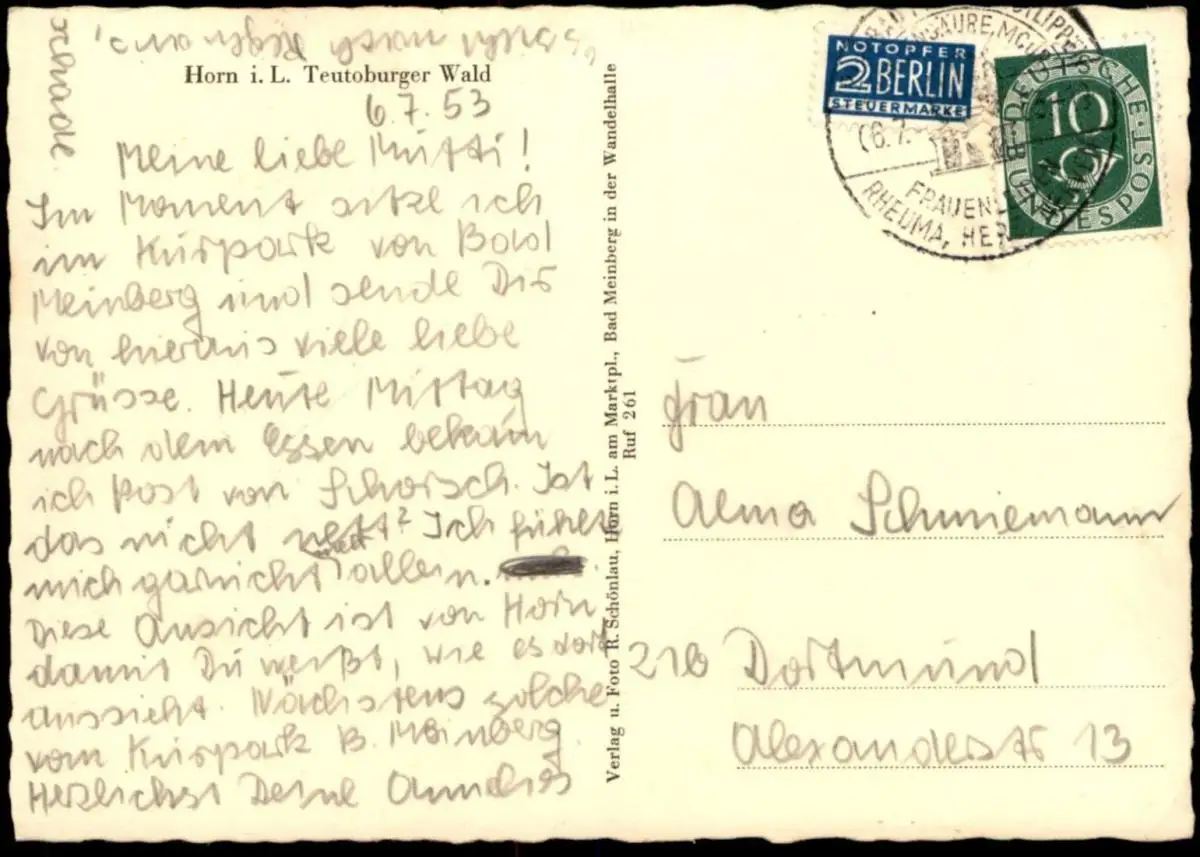 Horn i. L. Teutoburger Wald
6.7.53
Meine liebe Mutti!
Im Moment sitze ich
im Kurpark von Bad
Meinberg und sende Dir
von hieraus viele liebe
Grüsse. Heute Mittag
nach dem Essen bekam
ich Post von Schorsch. Ist
das nicht nett? Ich fühle
mich garnicht allein.
Diese Ansicht ist von Horn
damit Du weißt, wie es dort
aussieht. Nächstens solche
vom Kurpark B. Meinberg.
Herzlichst Deine
schade
Verlag u. Foto R. Schönlau, Horn i. L. am Marktpl., Bad Meinberg in der Wandelhalle
Ruf 261
NOTOPFER
2 BERLIN
STEUERMARKE
DEUTSCHE
BUNDESPOST
10
6.7.
FRAUENL
RHEUMA, HER
Frau
Alma Schuniemann
21b Dortmund
Alexanderstr 13